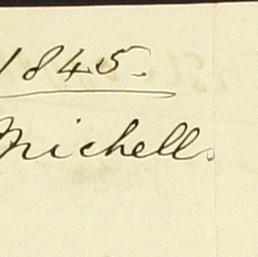 1845.
Michell.